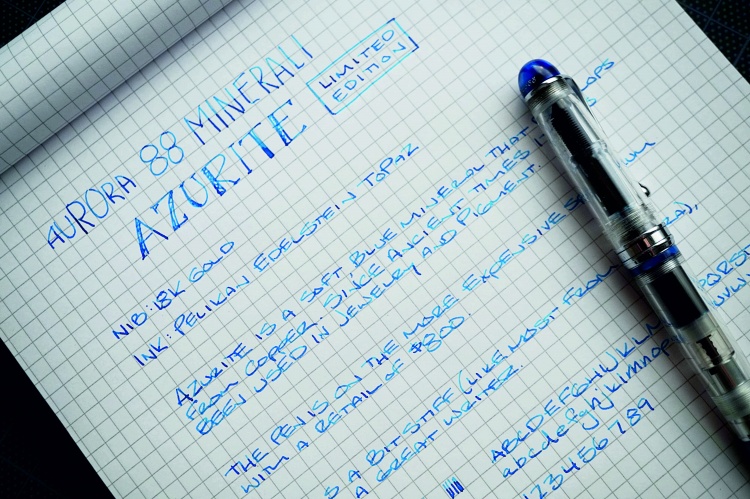 AURORA 88 MINERALI
AZURITE
LIMITED
EDITION
NIB: 18K GOLD
INK: PELIKAN EDELSTEIN TOPAZ
AZURITE IS A SOFT BLUE MINERAL THAT
FROM COPPER. SINCE ANCIENT TIMES
BEEN USED IN JEWELRY AND PIGMENT.
THE PEN IS ON THE MORE EXPENSIVE
WITH A RETAIL OF $800.
A BIT STIFF (LIKE MOST FROM
A GREAT WRITER.
ABCDEFGHIJKLM
abcdefghijklmnop
123456789